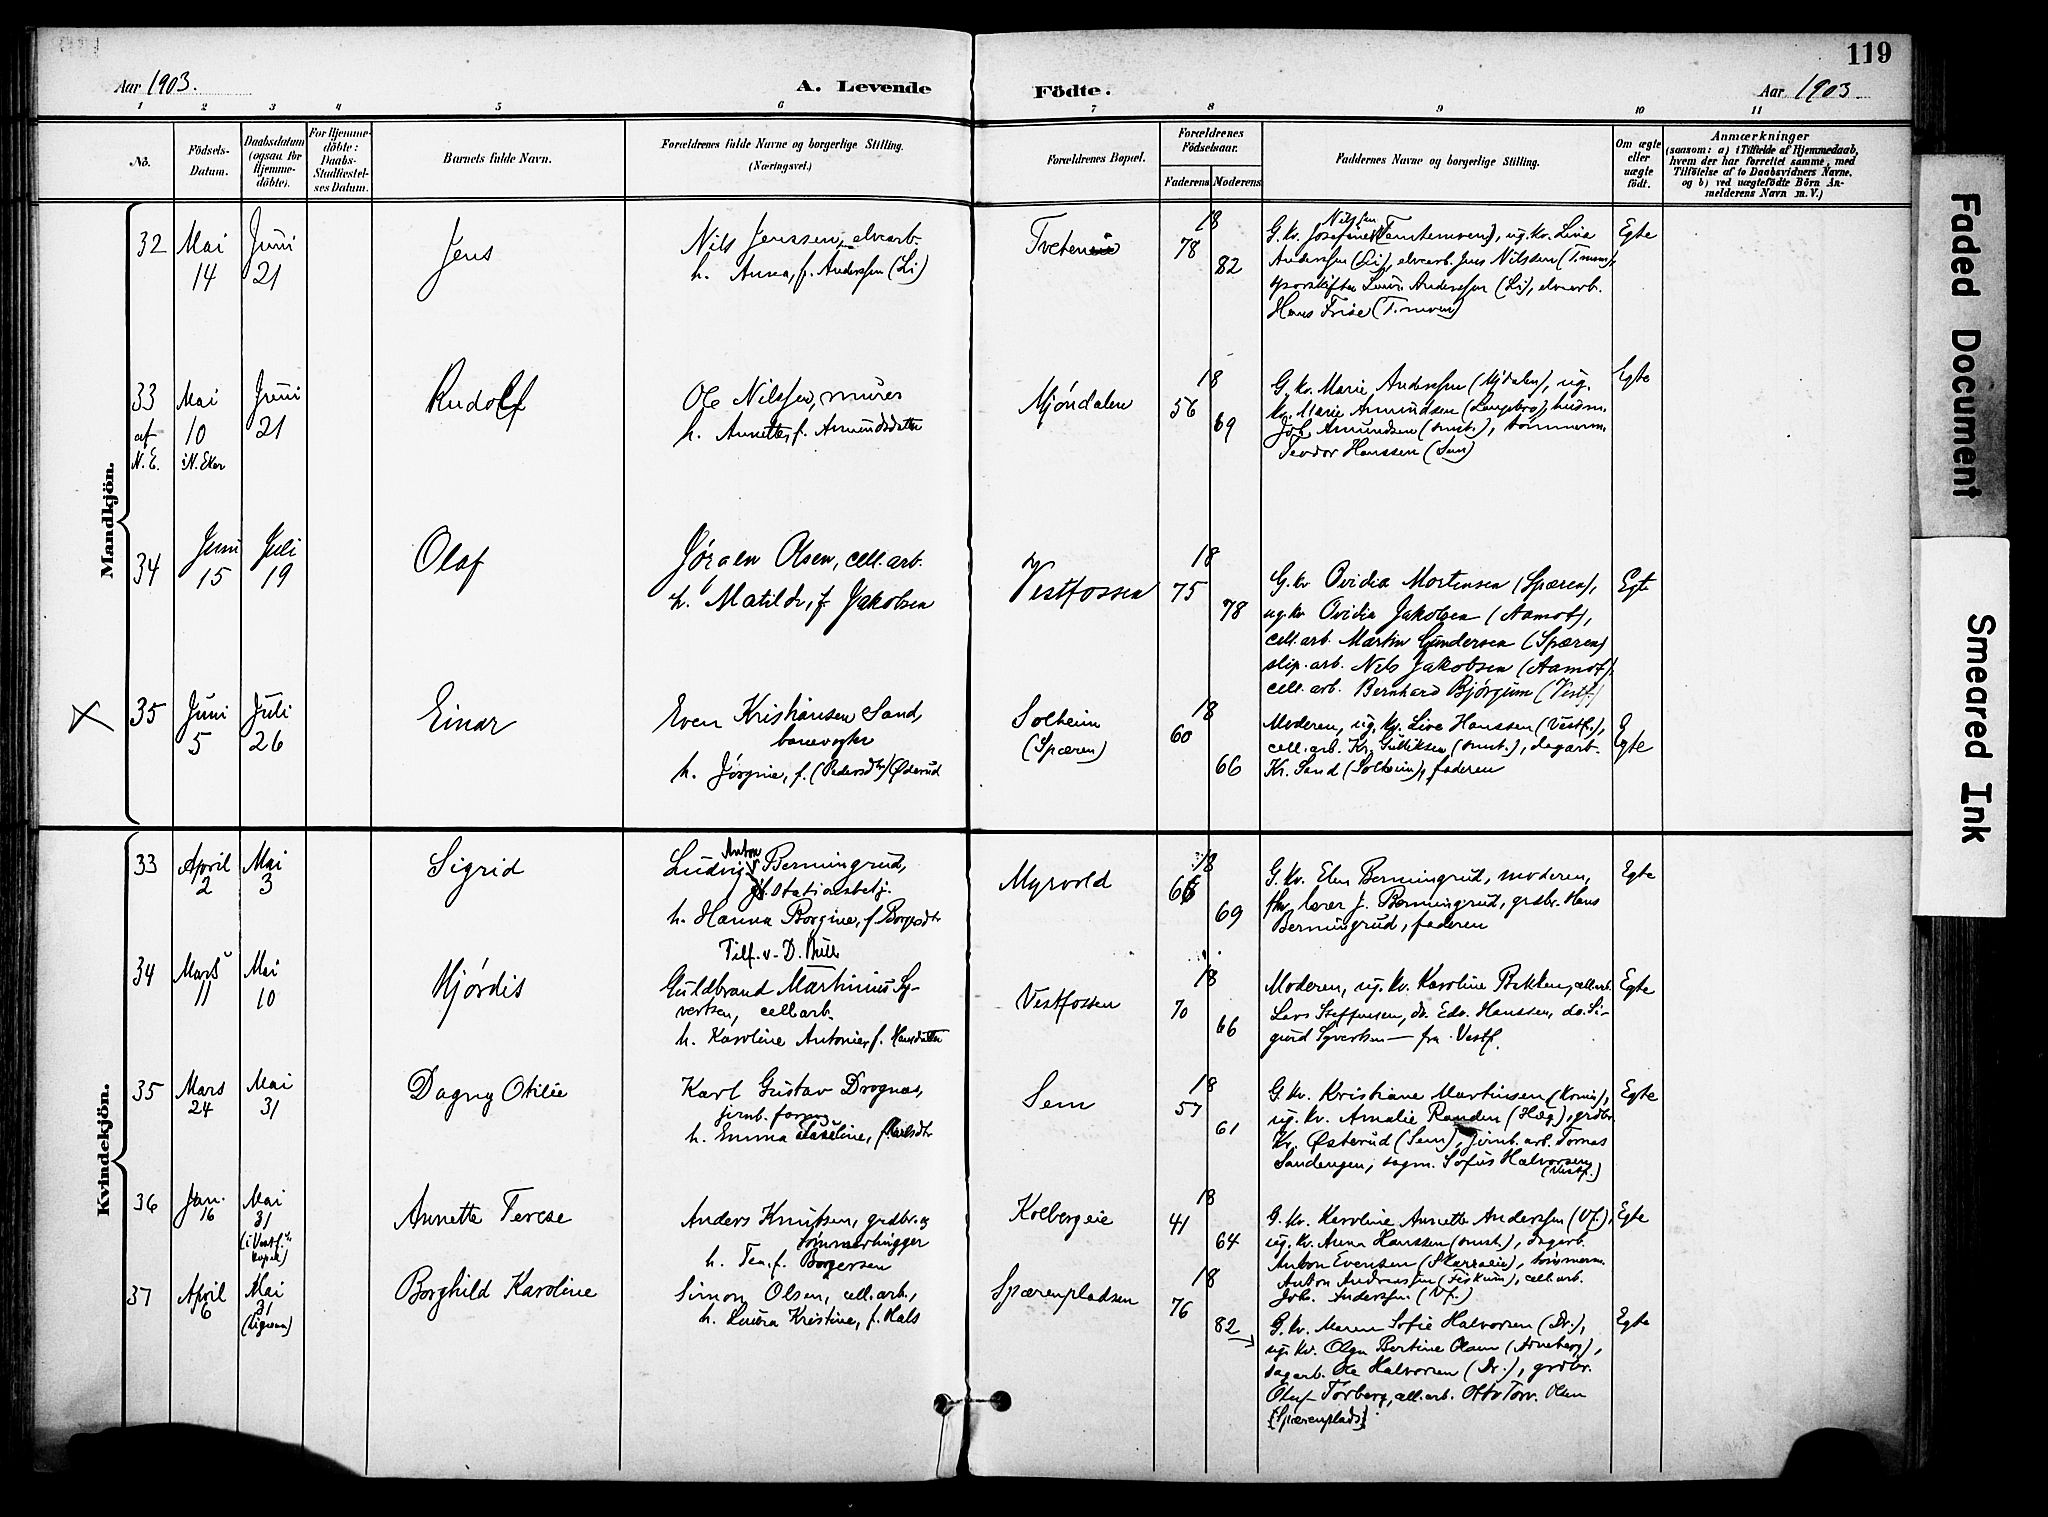 119
Aar 1903.
A. Levende
Födte.
Aar 1903
1 2 3 4 5 6 7 8 9 10 11
No.
Födsels-
Datum.
Daabsdatum
(ogsaa for
Hjemme-
döbte).
For Hjemme-
döbte:
Daabs-
Stadfæstel-
ses Datum.
Barnets fulde Navn.
Forældrenes fulde Navne og borgerlige Stilling.
(Næringsvei.)
Forældrenes Bopæl.
Forældrenes
Födselsaar.
Faderens
Moderens
Faddernes Navne og borgerlige Stilling.
Om ægte
eller
uægte
födt.
Anmærkninger
(saasom: a) i Tilfælde af Hjemmedaab,
hvem der har forrettet samme, med
Tilföielse af to Daabsvidners Navne,
og b) ved uægtefödte Börn An-
melderens Navn m. V.)
Mandkjön.
32
Mai
14
Juni
21
Jens
Nils Jenssen, elvearb.
h. Anna, f. Anderssen (Li)
18
78
82
G. kv. Josefine Nilssen
ug. kv. Lina
Anderssen (Li), elvearb. Jens Nilssen
Anderssen (Li), elvearb.
Hans Frise
Egte
33
af
N. E.
Mai
10
i N. Eker
Juni
21
Rudolf
Ole Nilssen, murer
h. Annette, f. Amundsdatter
Mjøndalen
18
56
69
G. kv. Marie Anderssen (Mjdalen), ug.
kv. Marie Amundsen (Langebro), husm.
Joh. Amundsen (smst.), tømmerm.
Teodor Hanssen (Sem)
Egte
34
Juni
15
Juli
19
Olaf
Jørgen Olsen, cell. arb.
h. Matilde, f. Jakobsen
Vestfossen
18
75
78
G. kv. Ovidia Mortensen (Spæren),
ug. kv. Ovidia Jakobsen (Aamot),
cell. arb. Martin Gundersen (Spæren)
slip. arb. Nils Jakobsen (Aamot),
cell. arb. Bernhard Bjørgum (Vestf.)
Egte
X
35
Juni
5
Juli
26
Einar
Even Kristiansen Sand,
banevogter
h. Jørgine, f. (Pedersdtr) Østerud
Solheim
(Spæren)
18
60
66
Moderen, ug. kv. Live Hanssen (Vestf.),
cell. arb. Kr. Gulliksen (smst.), dagarb.
Kr. Sand (Solheim), faderen
Egte
Kvindekjön.
33
April
2
Mai
3
Sigrid
Ludvig Anton Berningrud,
stationsbetj.
h. Hanna Borgine, f. Borgesdtr
Myrvold
18
69
G. kv. Elen Berningrud, moderen,
lærer J. Berningrud, grdbr. Hans
Berningrud, faderen
Egte
34
Mars
11
Mai
10
Hjørdis
Tilf. v. D. Bull
Guldbrand Martinius Sy-
vertsen, cell. arb.
h. Karoline Antonie, f. Hansdatter
Vestfossen
18
70
66
Moderen, ug. kv. Karoline Bakken, cell. arb.
Lars Steffensen, do. Edv. Hanssen, do. Si-
gurd Syvertsen — fra Vestf.
Egte
35
Mars
24
Mai
31
Dagny Otilie
Karl Gustav Drognæs,
jernb. form.
h. Emma
Sem
18
57
61
G. kv. Kristiane Martinsen
ug. kv. Amalie Randen (Hæg), grdbr.
Kr. Østerud (Sem), jernb. arb. Tomas
Sandengen, sagm. Sofus Halvorsen
(Vestf.)
Egte
36
Jan.
16
Mai
31
(i Vestf.
kapel)
Annette Terese
Anders Knutsen, grdbr. og
tømmerhugger
h. Tea, f. Borgersen
Kolbergeie
18
41
64
G. kv. Karoline Annette Anderssen (Vf.),
ug. kv. Anna Hanssen (smst.), dagarb.
Anton Evensen
tømmerm.
Anton Andreassen (Fiskum), cell. arb.
Joh. Anderssen (Vf.)
Egte
37
April
6
Mai
31
Borghild Karoline
Simon Olsen, cell. arb.,
h. Laura Kristine, f. Hals
Spærenpladsen
18
76
82
G. kv. Maren Sofie Halvorsen (Dr.),
ug. kv. Olga Bertine Olsen (Arneberg),
sagarb. Ole Halvorsen (Dr.), grdbr.
Oluf Torberg, cell. arb. Otto Torv. Olsen
(Spærenplads).
Egte
Faded Document
Smeared Ink